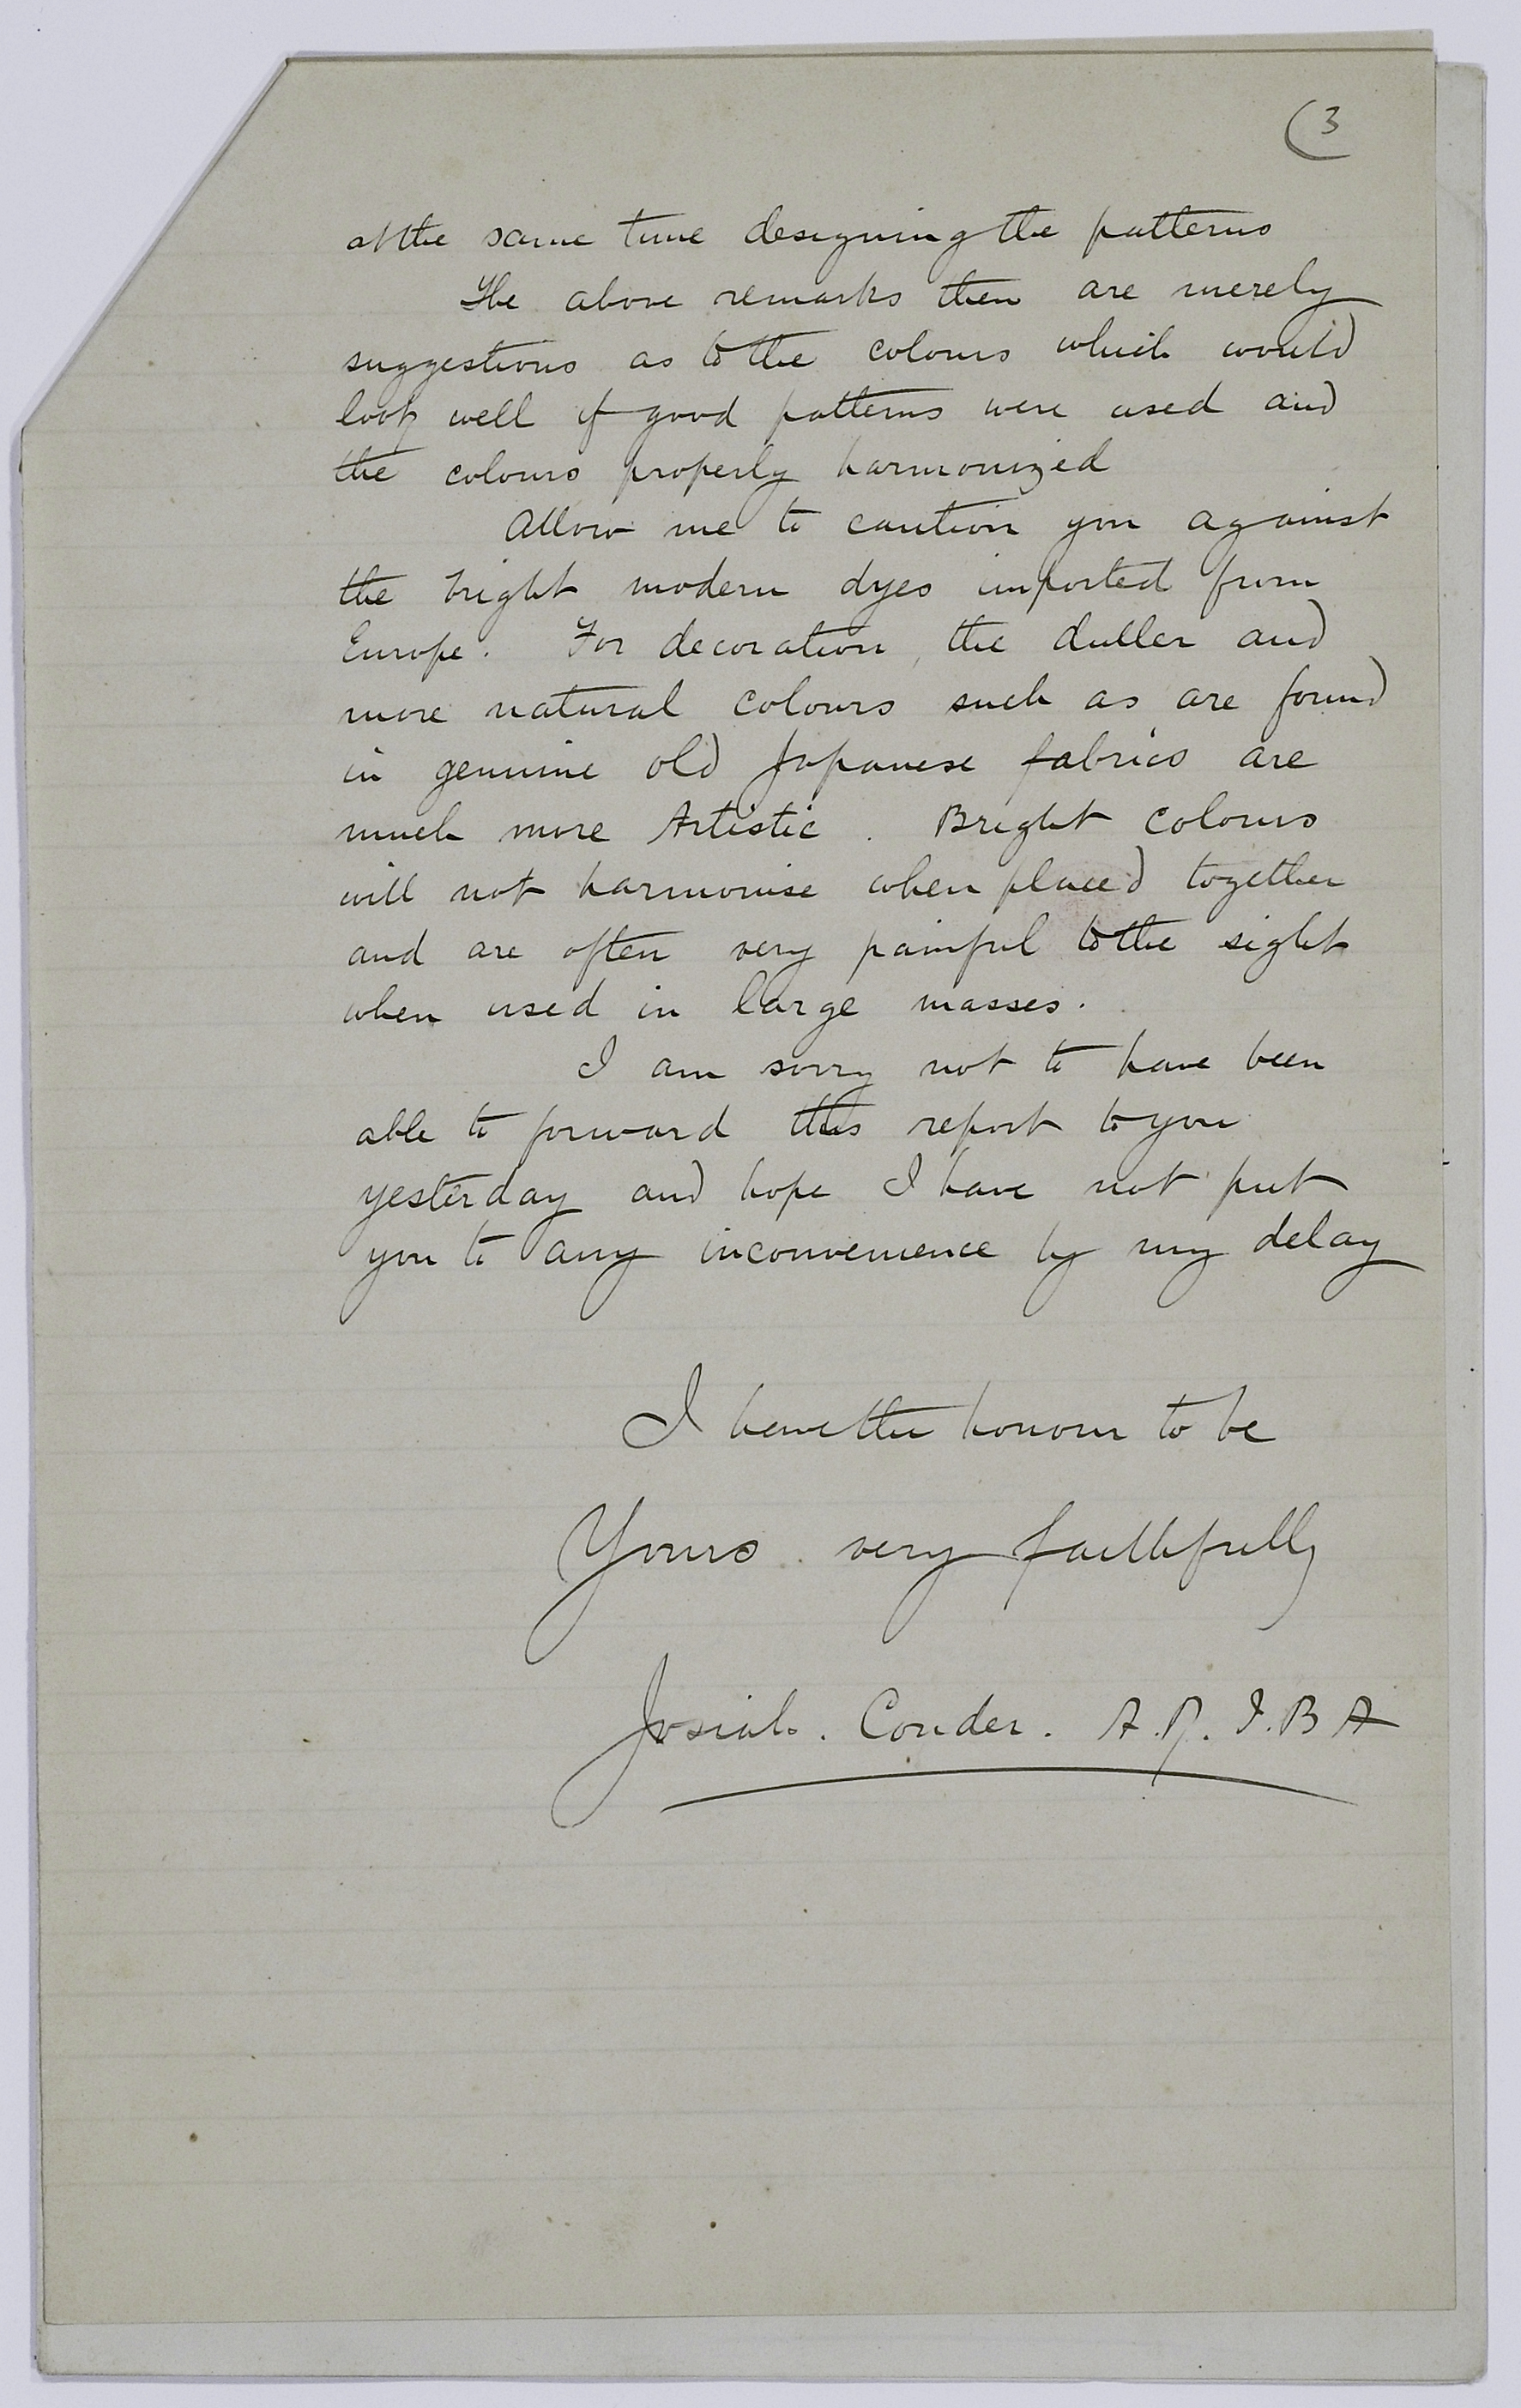 (3
at the same time designing the patterns
The above remarks then are merely
suggestions as to the colours which would
look well if good patterns were used and
the colours properly harmonized
Allow me to caution you against
the bright modern dyes imported from
Europe. For decoration, the duller and
more natural colours such as are found
in genuine old Japanese fabrics are
much more Artistic. Bright colours
will not harmonise when placed together
and are often very painful to the sight
when used in large masses.
I am sorry not to have been
able to forward this report to you
yesterday and hope I have not put
you to any inconvenience by my delay
I have the honour to be
Yours very faithfully
Josiah. Conder. A.R.I.B A